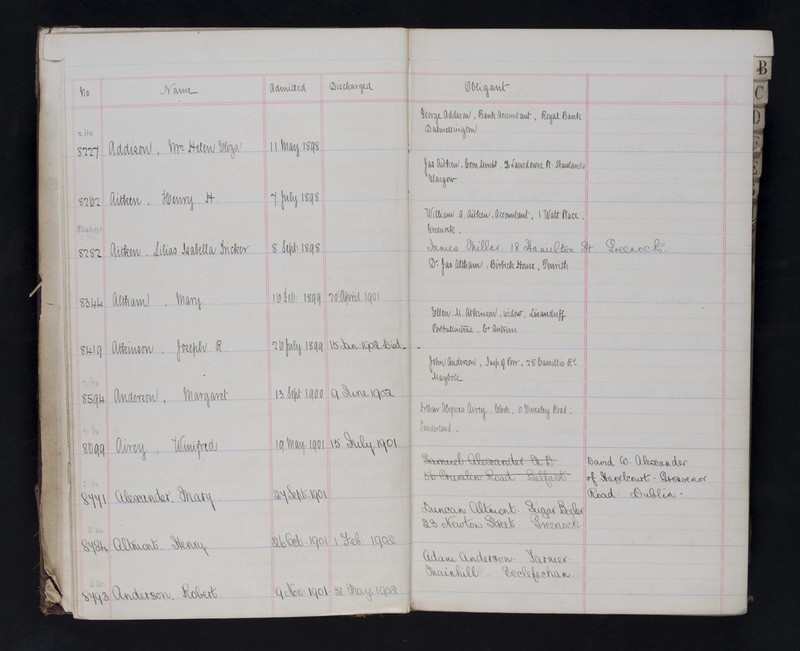 No Name Admitted Discharged Obligant
B
C
D
George Addison, Bank Accountant, Royal Bank
Dalmellington
8227 Addison, Mrs Helen Eliza 11 May 1898
Jas Aitken, 3 Lansdowne Pl. Shawlands
Glasgow
8262 Aitken, Henry H 7 July 1898
William A. Aitken, Accountant, 1 Watt Place,
Greenock.
8282 Aitken, Lilias Isabella Fricker 8 Sept 1898 James Millar 18 Hamilton St. Greenock.
Dr Jas Altham, Birbeck House, Penrith
8344 Altham, Mary 16 Feb 1899 20 April 1901
Ellen M. Atkinson, widow, Lisanduff
Portballintrae, Co Antrim
8419 Atkinson, Joseph R. 26 July 1899 15 Jan 1902. died
John Anderson, Insp of Poor, 28 Cassillis Rd.
Maybole
8594 Anderson, Margaret 13 Sept 1900 9 June 1902
Arthur Airey, Clerk, Road,
Sunderland.
8699 Airey, Winifred 19 May 1901 15 July 1901
Samuel Alexander
Crumlin Road Belfast
David W. Alexander
of Hazelcourt. Grosvenor
Road. Dublin.
8771 Alexander, Mary 27 Sept. 1901
Duncan Altmont. Sugar Boiler
23 Newton Street Greenock
8784 Altmont. Henry 26 Oct. 1901 1 Feb 1902
Adam Anderson. Farmer.
Mainhill. Ecclefechan.
8793 Anderson. Robert 9 Nov. 1901 31 May. 1902